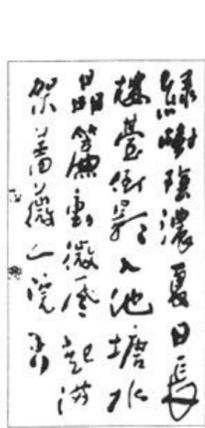 綠樹陰濃夏日長
樓臺倒影入池塘水
晶簾動微風起滿
架薔薇一院香